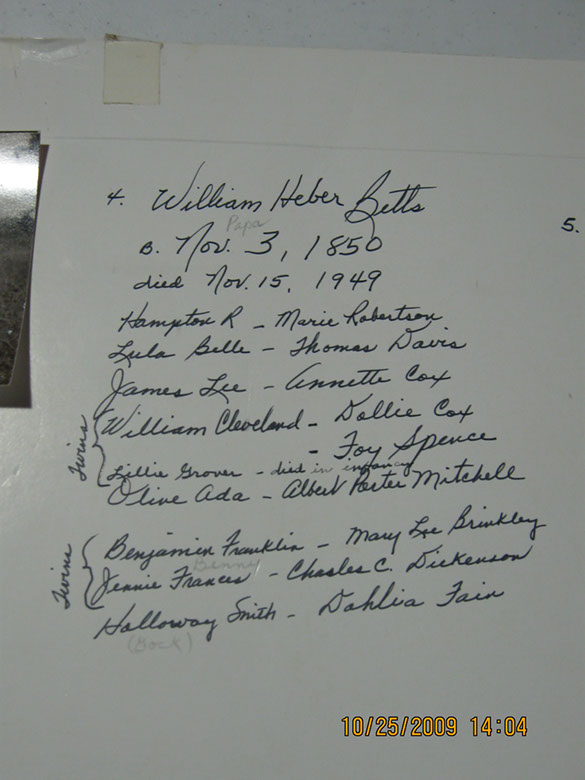 4. William Heber Betts
Papa
B. Nov. 3, 1850
5.
died Nov. 15, 1949
Hampton R - Marie Robertson
Lula Belle - Thomas Davis
James Lee - Annette Cox
Twins
William Cleveland - Dollie Cox
- Foy Spence
Lillie Grover - died in infancy
Olive Ada - Albert Porter Mitchell
Twins
Benjamin Franklin - Mary Lee Brinkley
Benny
Jennie Frances - Chasles C. Dickenson
Holloway Smith - Dahlia Fain
(Bock)
10/25/2009 14:04